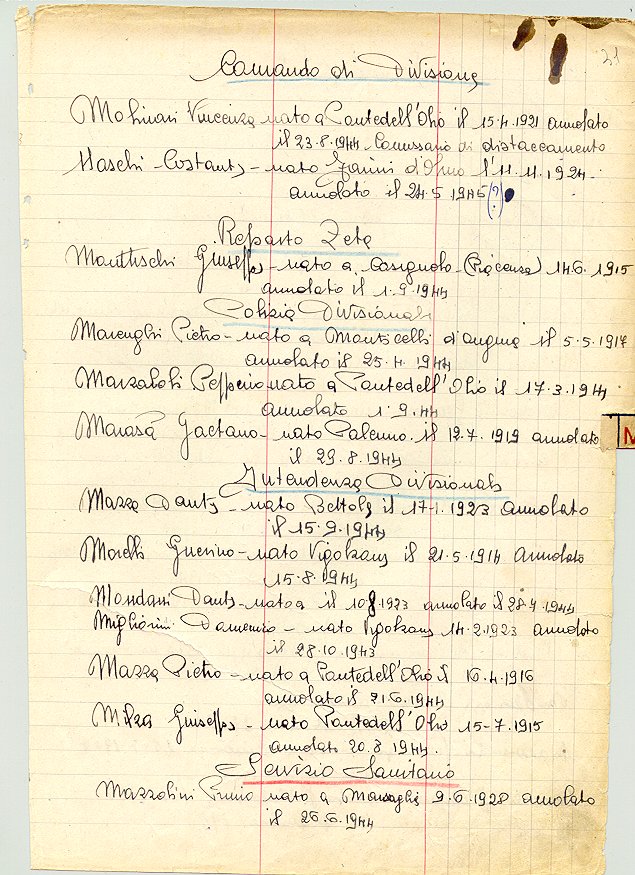 31
Comando di Divisione
Molinari Vincenzo nato a Pontedell'Olio il 15.4.1921 annolato
il 23.8.1944 Comissario di distaccamento
Maschi Costante - nato d'Olmo l'11.11.1924.
annolato il 24.5.1945 (?)
Reparto Zeta
Giuseppe - nato a (Piacenza) 14.6.1915
annolato il 1.9.1944
Polizia Divisionale
Marenghi Pietro - nato a Monticelli d'Ongina il 5.5.1917
annolato il 25.4.1944
nato a Pontedell'Olio il 17.3.1944
annolato 1.9.44
Marasà Gaetano - nato Palermo il 12.7.1919 annolato
il 29.8.1944
M
Intendenza Divisionale
Mazza Dante - nato Bettola il 17.1.1923 annolato
il 15.9.1944
Morelli Guerino - nato Vigolzone il 21.5.1914 annolato
15.8.1944
Dante - nato a il 10.8.1923 annolato il 28.4.1944
Migliorini Domenico - nato Vigolzone 14.2.1923 annolato
il 28.10.1943
Mazza Pietro - nato a Pontedell'Olio il 16.4.1916
annolato il 21.6.1944
Giuseppe - nato Pontedell'Olio 15-7.1915
annolato 20.8.1944.
Servizio Sanitario
Mazzolini Primo nato a Morsaglia 9.6.1928 annolato
il 26.6.1944